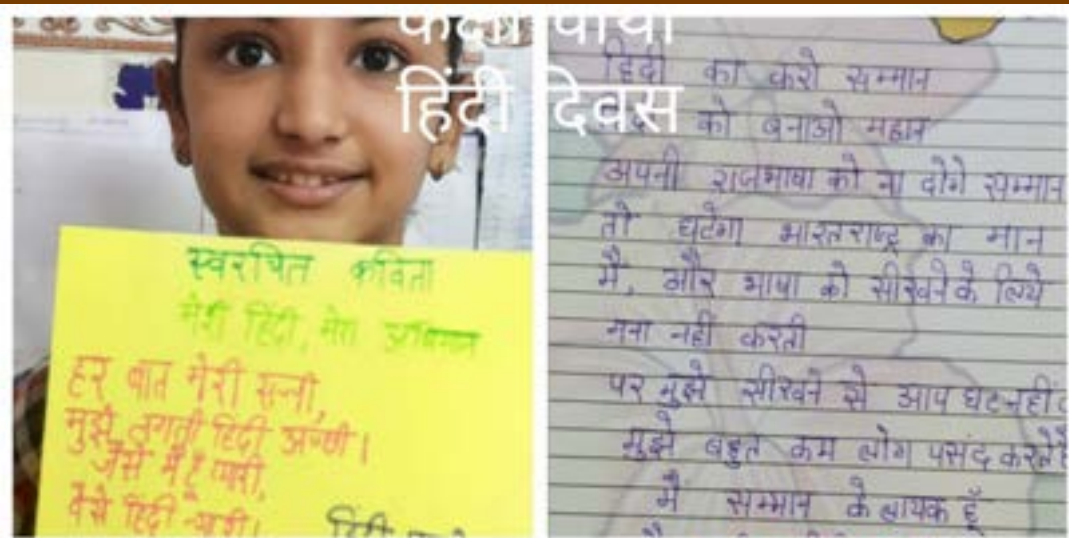 कक्षा पांचवी
हिंदी दिवस
स्वरचित कविता
मेरी हिंदी, मेरा अभिमान
हर बात मेरी सच्ची,
मुझे लगती हिंदी अच्छी।
जैसे मैं हूँ प्यारी,
वैसे हिंदी न्यारी।
हिंदी
हिंदी का करो सम्मान
को बनाओ महान
अपनी राजभाषा को ना दोगे सम्मान
तो घटेगा भारत राष्ट्र का मान
मैं, और भाषा को सीखने के लिये
मना नहीं करती
पर मुझे सीखने से आप घट नहीं
मुझे बहुत कम लोग पसंद करते है
मै सम्मान के लायक हूँ